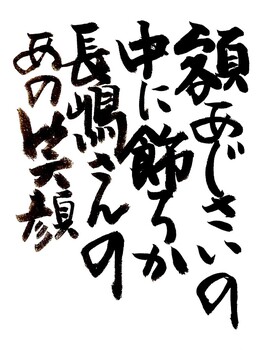 額あじさいの
中に飾ろか
長嶋さんの
あの笑顔